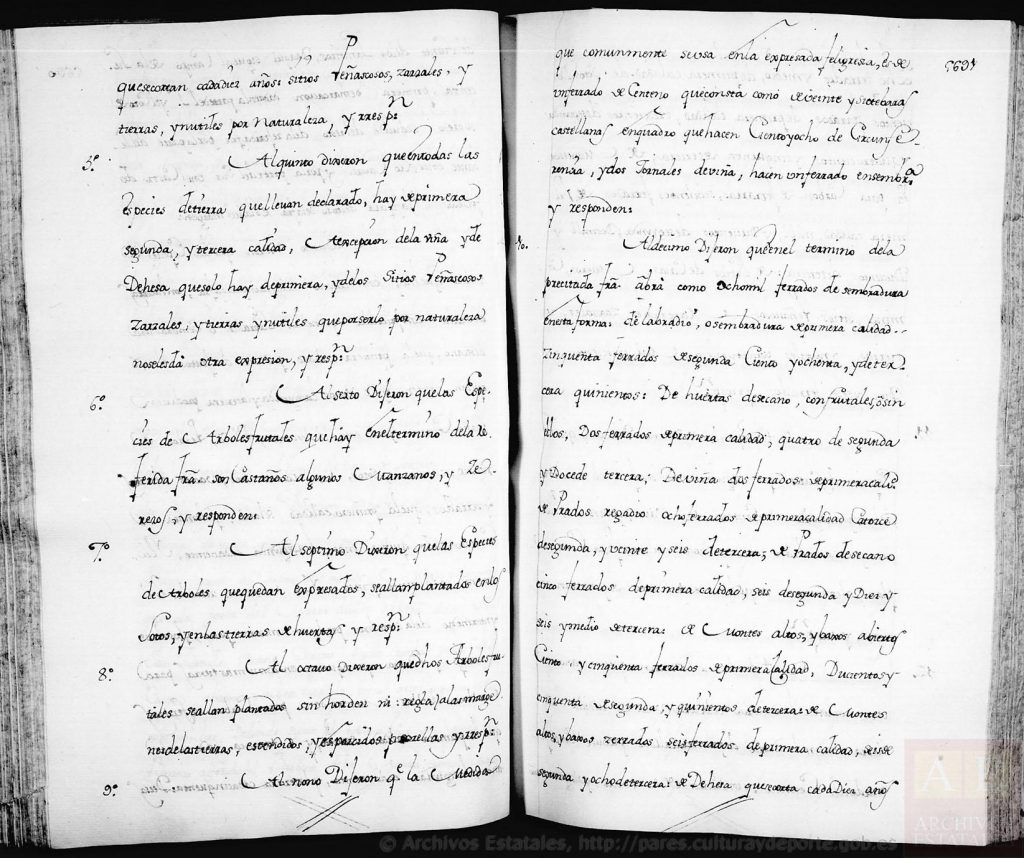 que se corean cada diez años: sitios Peñascosos, zarzales, y
tierras, ynutiles por Naturaleza, y rresp.n
5.º Al quinto dixeron que en todas las
especies de tierra que llevan declarado, hay de primera
segunda, y tercera calidad, A excepcion de la viña y de
Dehesa que solo hay de primera, y de los Sitios Peñascosos
zarzales, y tierras ynutiles que por serlo por naturaleza
no se les da otra expresion, y resp.n
6.º Al sexto Dijeron que las Espe-
cies de Arboles fruttales que hay en el termino de la re-
ferida fra. son Castaños algunos Manzanos, y Ze-
rezos, y responden:
7.º Al septimo Dixeron que las Especies
de Arboles que quedan expresados, se allan plantados en los
Sotos, y en las tierras de huertas y resp.n
8.º Al octauo Dixeron que dhos Arboles fru-
tales se allan plantados sin horden ni regla) a las marge-
nes de las tierras, estendidos, y esparcidos por ellas y rresp.n
9.º Al nono Dijeron q.e la Medida
que comunmente se usa en la expresada feligresia, es de
un ferrado de Centeno que consta como de veinte y siete baras
castellanas en quadro que hacen Ciento y ocho de Circunfe-
rencia, y dos Jornales de viña, hacen un ferrado en sembra.a
y responden:
10. Al decimo Dijeron que en el termino de la
precitada fra. abrá como ochomil ferrados de sembradura
en esta forma: de labradio, o sembradura de primera calidad..
zinquenta ferrados de segunda Ciento y ochenta, y de ter-
cera quinientos: De huertas de secano, con frutales, o sin
ellos, Dos ferrados de primera calidad, quatro de segunda
y Doce de tercera; De viña dos ferrados de primera calid.d
de Prados regadio ocho ferrados de primera calidad Catorce
de segunda, y veinte y seis de tercera; de Prados de secano
cinco ferrados de primera calidad, seis de segunda y Diez y
seis y medio de tercera: de Montes altos, y baxos abiertos
Ciento y cinquenta ferrados de primera Calidad, Ducientos y
cinquenta de segunda y quinientos de tercera: de Montes
altos, y baxos zerrados seis ferrados de primera calidad, seis de
segunda y ocho de tercera: de Dehesa que se corta cada Diez años
© Archivos Estatales, http://pares.culturaydeporte.gob.es
AE
ARCHIVOS
ESTATALES